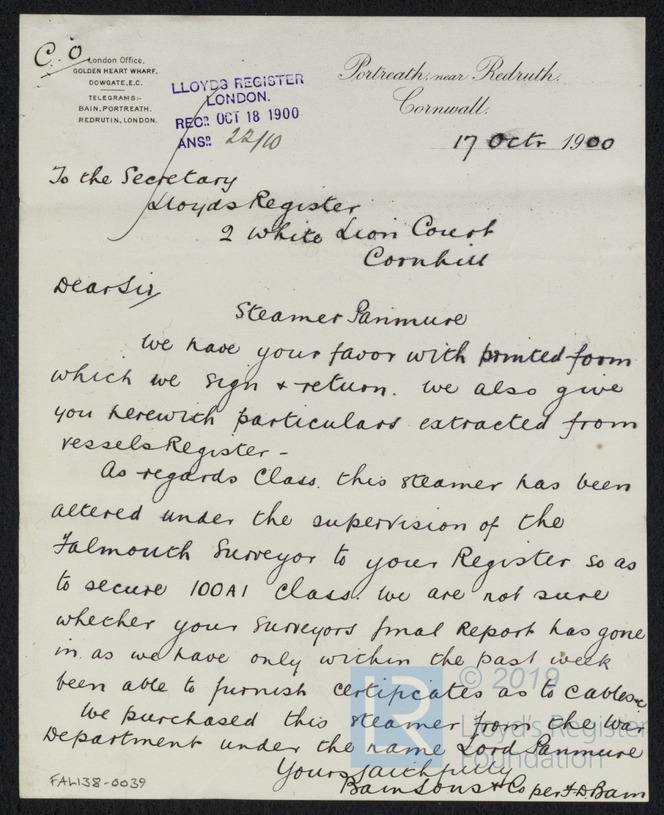 C.O
London Office,
GOLDEN HEART WHARF,
DOWGATE, E.C.
TELEGRAMS:-
BAIN, PORTREATH.
REDRUTIN, LONDON.
LLOYD'S REGISTER
LONDON.
REC^D. OCT 18 1900
ANS^D. 22/10
Portreath, near Redruth,
Cornwall.
17 Octr 1900
To the Secretary
Lloyds Register
2 White Lion Court
Cornhill
Dear Sir
Steamer Panmure
We have your favor with printed form
which we sign & return. We also give
you herewith particulars extracted from
vessels Register -
As regards Class. this steamer has been
altered under the supervision of the
Falmouth Surveyor to your Register so as
to secure 100A1 Class. We are not sure
whether your Surveyors final Report has gone
in as we have only within the past week
been able to furnish certificates as to Cables &c
We purchased this steamer from the War
Department under the name Lord Panmure
Yours faithfully
Bain Sons & Co per F.D. Bain
FAL138-0039
LR
© 2019
Lloyd's Register
Foundation